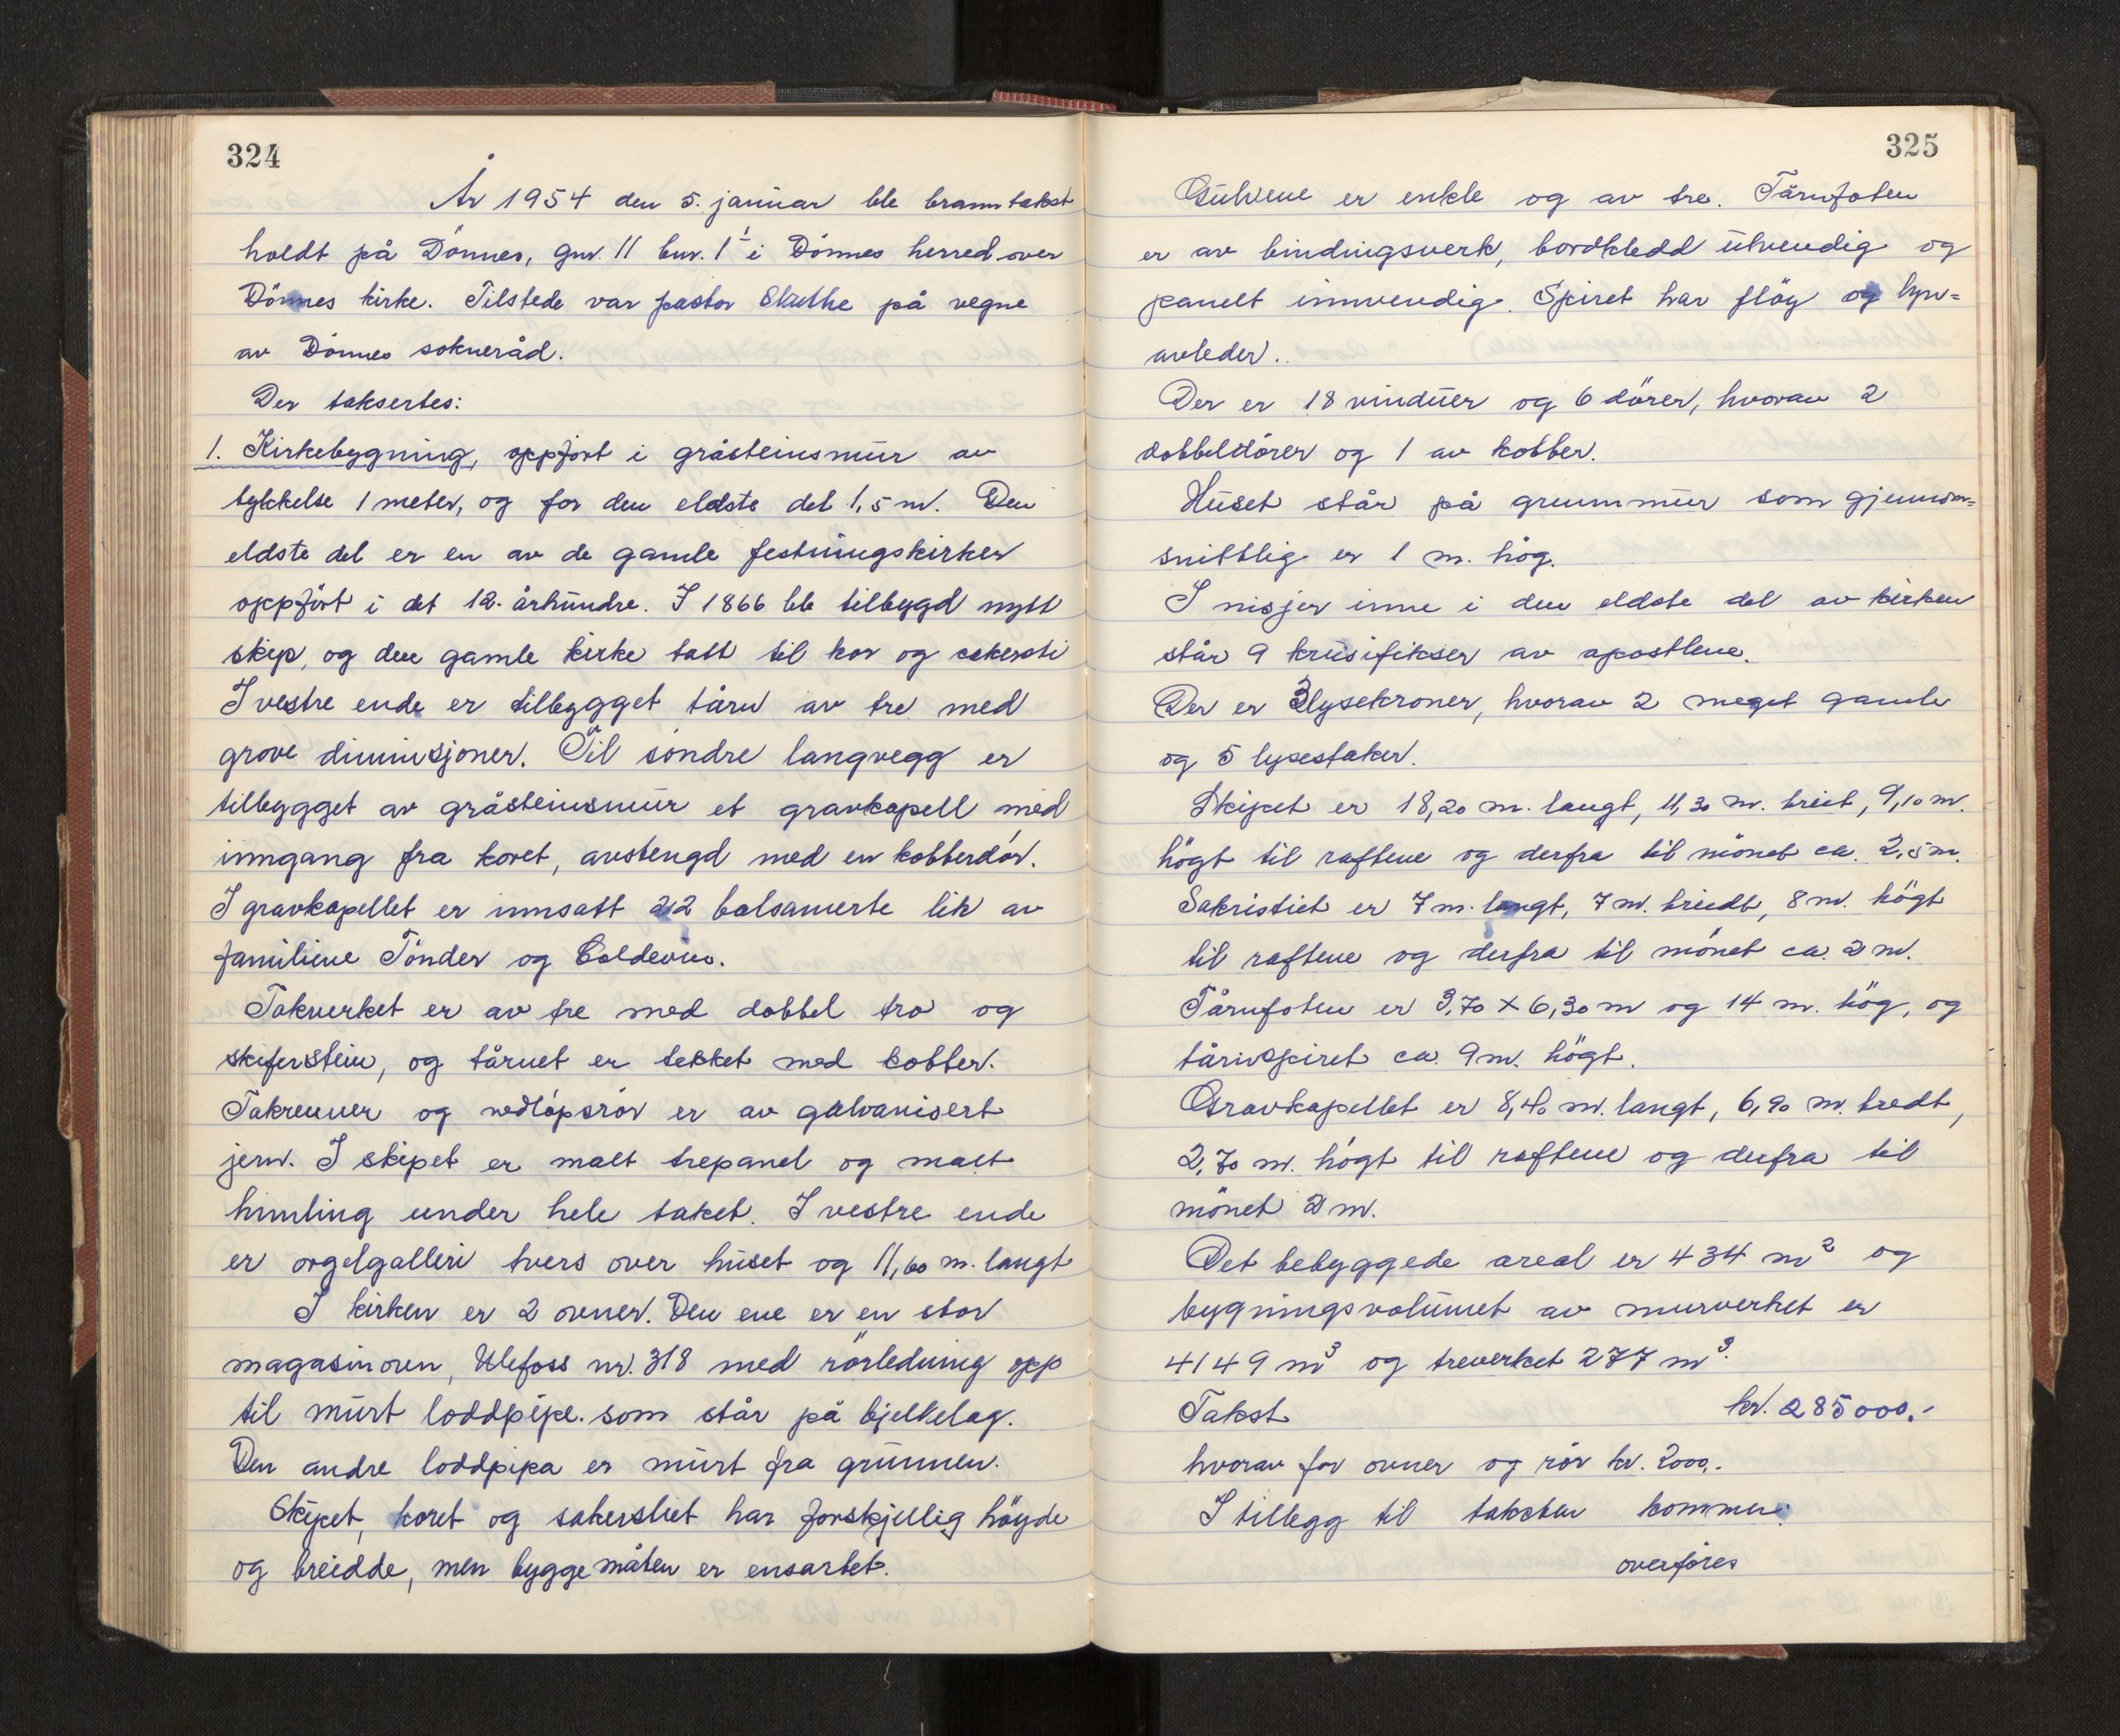 324
År 1954 den 5. januar ble branntakst
holdt på Dönnes, gnr. 11 bnr. 1 i Dönnes herred over
Dönnes kirke. Tilstede var pastor Skuthe på vegne
av Dönnes sokneråd.
Der taksertes:
1. Kirkebygning, oppfört i gråsteinsmur av
tykkelse 1 meter, og for den eldste del 1,5 m. Den
eldste del er en av de gamle festningskirker
oppfört i det 12. århundre. I 1866 ble tilbygd nytt
skip, og den gamle kirke tatt til kor og sakersti
I vestre ende er tilbygget tårn av tre med
grove dimnisjoner. Til söndre langvegg er
tilbygget av gråsteinsmur et gravkapell med
inngang fra koret, avstengd med en kobberdör.
I gravkapellet er innsatt 22 balsamerte lik av
familiene Tönder og Coldevin.
Takverket er av tre med dobbel tro og
skiferstein, og tårnet er tekket med kobber.
Takrenner og nedlöpsrör er av galvanisert
jern. I skipet er malt trepanel og malt
himling under hele taket. I vestre ende
er orgelgalleri tvers over huset og 11,60 m. langt
I kirken er 2 ovner. Den ene er en stor
magasinovn, Ulefoss nr. 318 med rörledning opp
til murt loddpipe. som står på bjelkelag.
Den andre loddpipa er murt fra grunnen.
Skipet, koret og sakerstiet har forskjellig höyde
og breidde, men byggemåten er ensartet.
325
Gulvene er enkle og av tre. Tårnfoten
er av bindingsverk, bordkledd utvendig og
panelt innvendig. Spiret har flöy og lyn=
avleder.
Der er 18 vinduer og 6 dörer, hvorav 2
dobbeldörer og 1 av kobber.
Huset står på grunnmur som gjennom=
snittlig er 1 m. hög.
I nisjer inne i den eldste del av kirken
står 9 krusifikser av apostlene.
Der er 3 lysekroner, hvorav 2 meget gamle
og 5 lysestaker.
Skipet er 18,20 m. langt, 11,30 m. breit, 9,10 m.
högt til raftene og derfra til mönet ca. 2,5 m.
Sakristiet er 7 m. langt, 7 m. breidt, 8 m. högt
til raftene og derfra til mönet ca. 2 m.
Tårnfoten er 3,70 x 6,30 m og 14 m. hög, og
tårnspiret ca. 9 m. högt.
Gravkapellet er 8,40 m. langt, 6,90 m. bredt,
2,70 m. högt til raftene og derfra til
mönet 2 m.
Det bebyggede areal er 434 m² og
bygningsvolumet av murverket er
4149 m³ og treverket 277 m³.
Takst kr. 285000.-
hvorav for ovner og rör kr. 2000,.
I tillegg til taksten kommer:
overföres